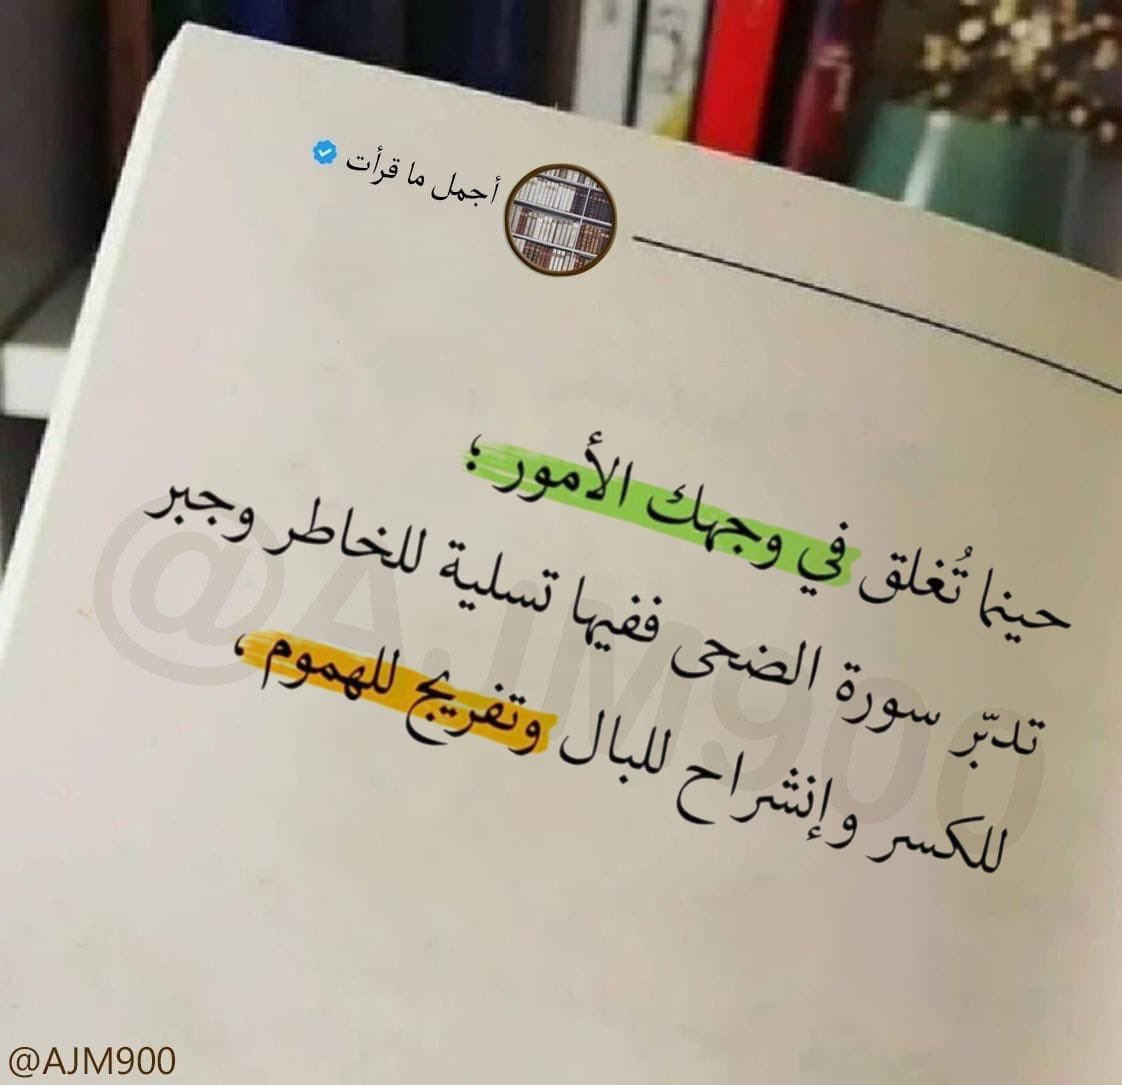 أجمل ما قرأت
حينما تُغلق في وجهك الأمور ؛
تدبّر سورة الضحى ففيها تسلية للخاطر وجبر
للكسر وإنشراح للبال وتفريج للهموم ،
@AJM900
@AJM900